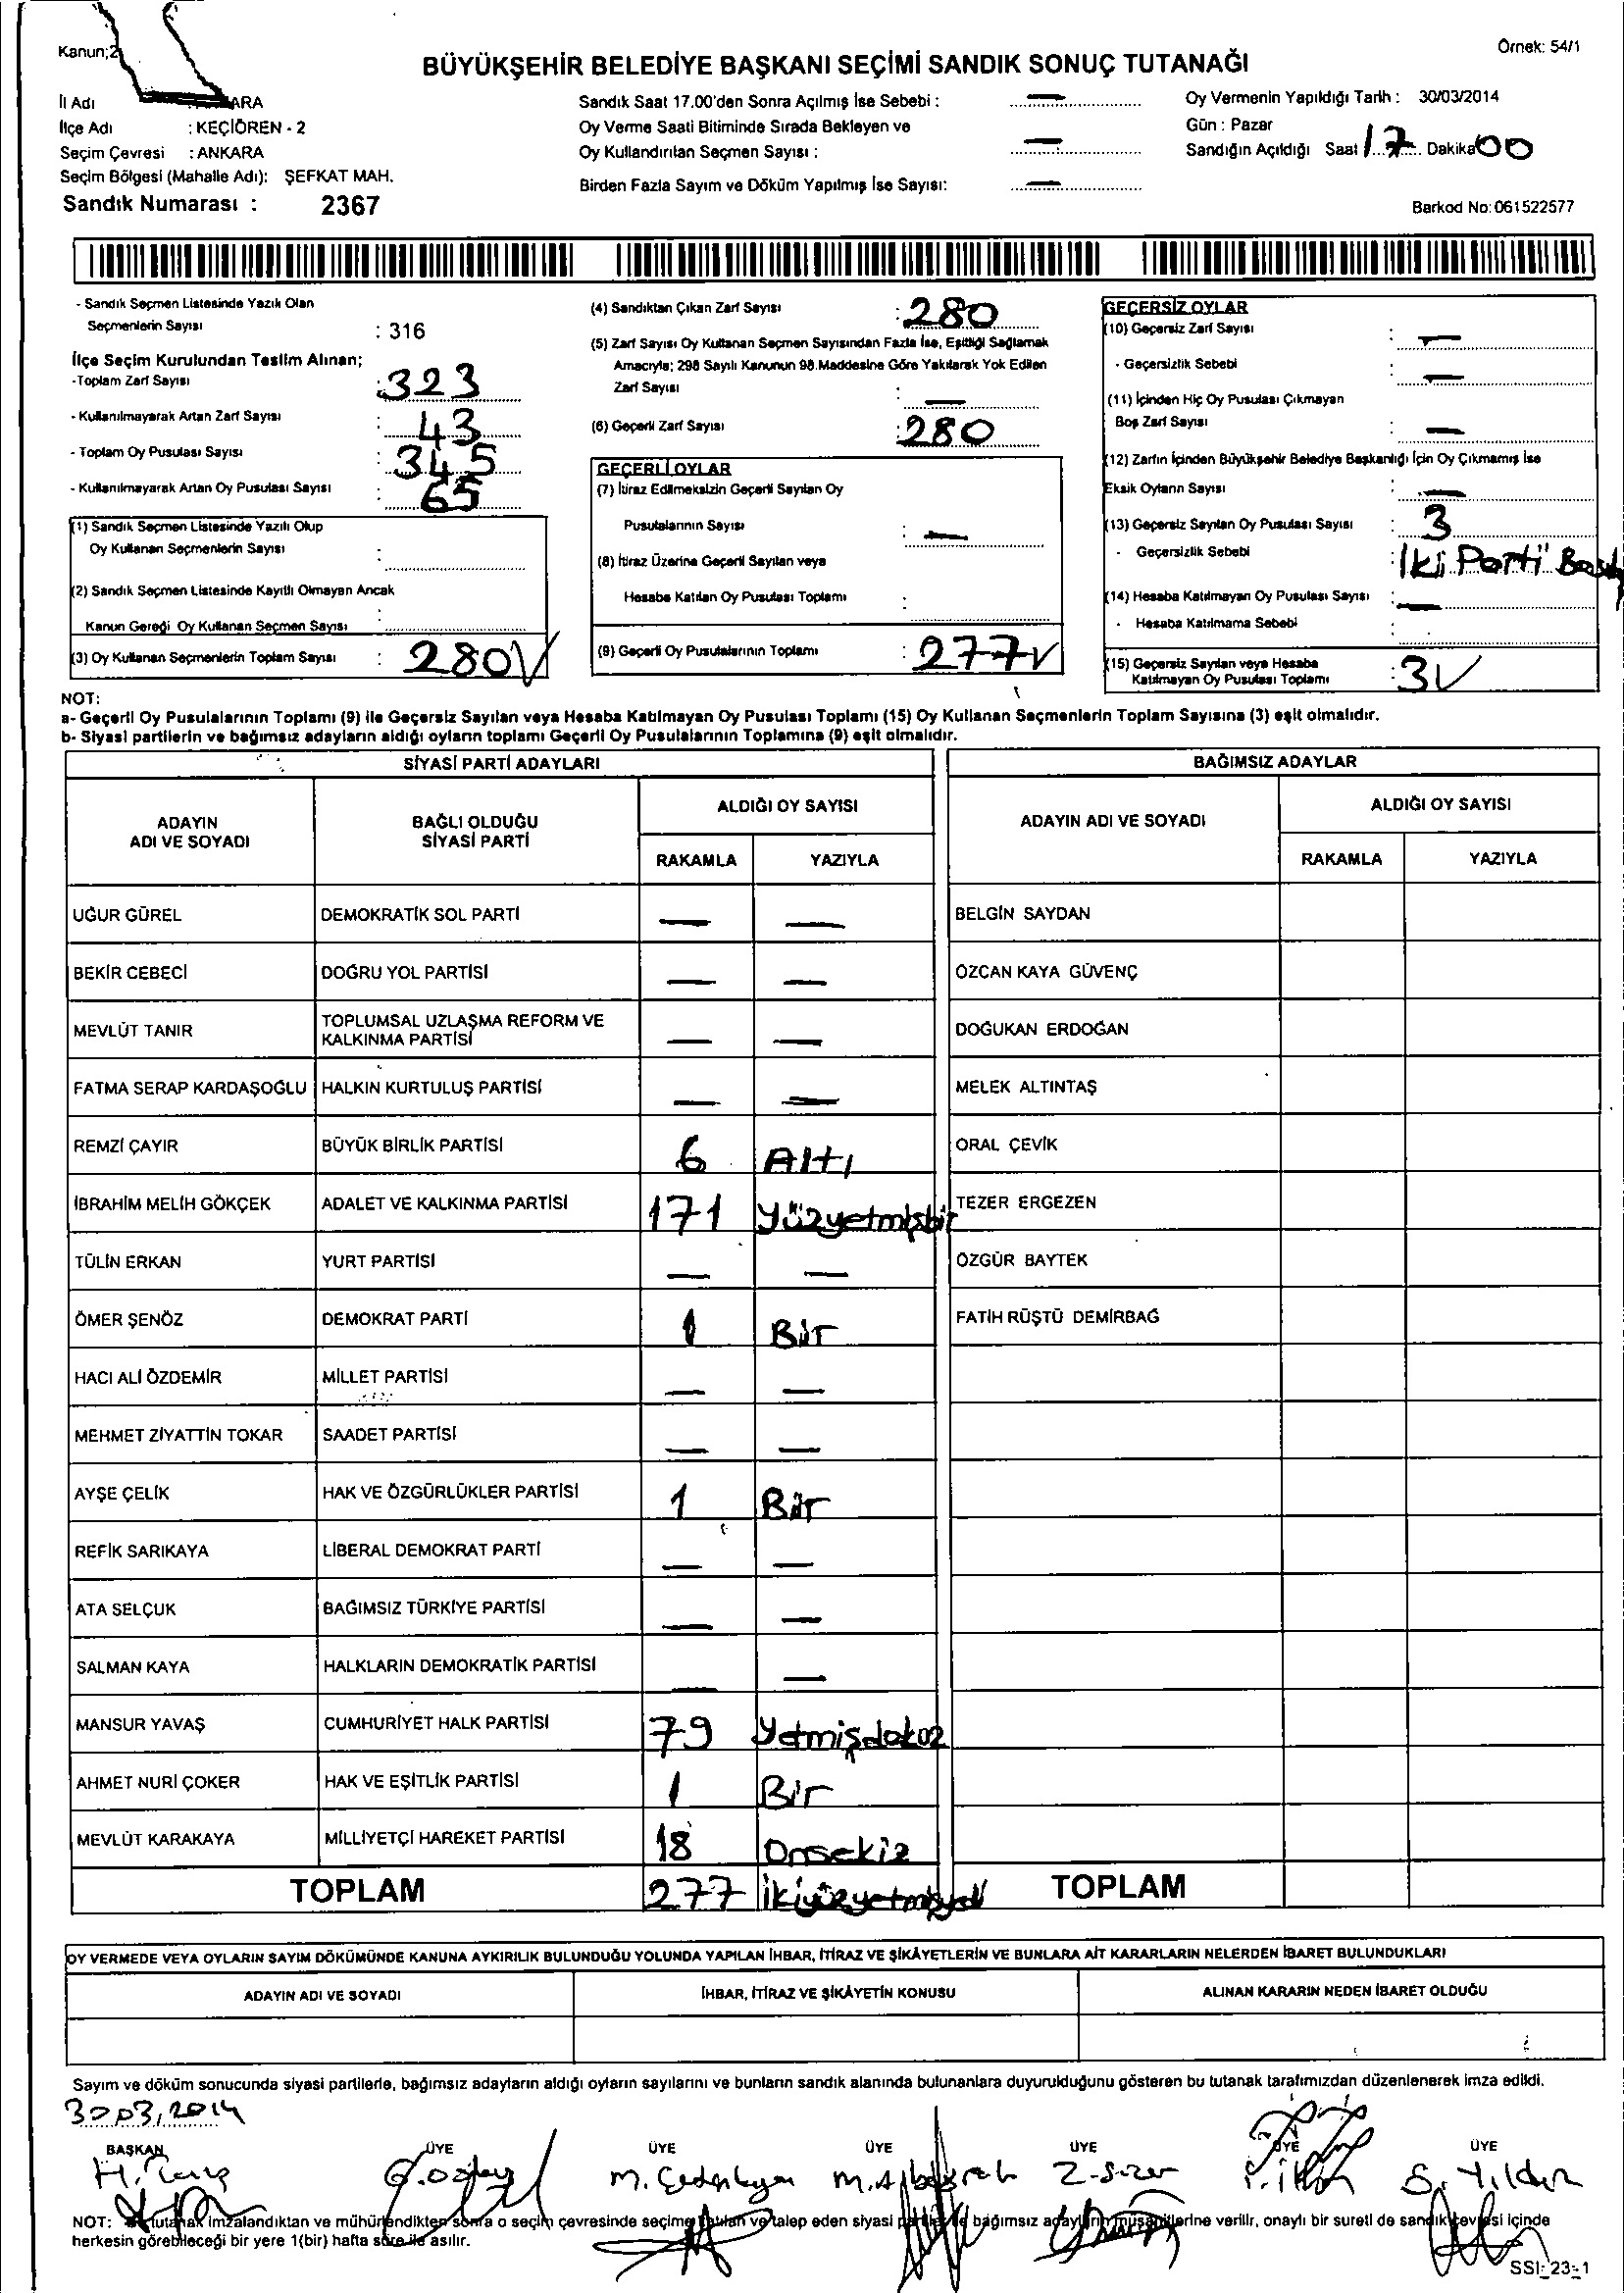 Kanun;2
Örnek: 54/1
BÜYÜKŞEHİR BELEDİYE BAŞKANI SEÇİMİ SANDIK SONUÇ TUTANAĞI
İl Adı ARA
İlçe Adı : KEÇİÖREN - 2
Seçim Çevresi : ANKARA
Seçim Bölgesi (Mahalle Adı): ŞEFKAT MAH.
Sandık Numarası : 2367
Sandık Saat 17.00'den Sonra Açılmış İse Sebebi : —
Oy Verme Saati Bitiminde Sırada Bekleyen ve
Oy Kullandırılan Seçmen Sayısı : —
Birden Fazla Sayım ve Döküm Yapılmış İse Sayısı: —
Oy Vermenin Yapıldığı Tarih : 30/03/2014
Gün : Pazar
Sandığın Açıldığı Saat 17 Dakika 00
Barkod No:061522577
- Sandık Seçmen Listesinde Yazılı Olan
Seçmenlerin Sayısı : 316
İlçe Seçim Kurulundan Teslim Alınan;
-Toplam Zarf Sayısı : 323
- Kullanılmayarak Artan Zarf Sayısı : 43
- Toplam Oy Pusulası Sayısı : 345
- Kullanılmayarak Artan Oy Pusulası Sayısı : 65
(1) Sandık Seçmen Listesinde Yazılı Olup
Oy Kullanan Seçmenlerin Sayısı :
(2) Sandık Seçmen Listesinde Kayıtlı Olmayan Ancak
Kanun Gereği Oy Kullanan Seçmen Sayısı :
(3) Oy Kullanan Seçmenlerin Toplam Sayısı : 280 V
(4) Sandıktan Çıkan Zarf Sayısı : 280
(5) Zarf Sayısı Oy Kullanan Seçmen Sayısından Fazla İse, Eşitliği Sağlamak
Amacıyla; 298 Sayılı Kanunun 98.Maddesine Göre Yakılarak Yok Edilen
Zarf Sayısı : —
(6) Geçerli Zarf Sayısı : 280
GEÇERLİ OYLAR
(7) İtiraz Edilmeksizin Geçerli Sayılan Oy
Pusulalarının Sayısı : —
(8) İtiraz Üzerine Geçerli Sayılan veya
Hesaba Katılan Oy Pusulası Toplamı :
(9) Geçerli Oy Pusulalarının Toplamı : 277 V
GEÇERSİZ OYLAR
(10) Geçersiz Zarf Sayısı : —
- Geçersizlik Sebebi : —
(11) İçinden Hiç Oy Pusulası Çıkmayan
Boş Zarf Sayısı : —
(12) Zarfın İçinden Büyükşehir Belediye Başkanlığı İçin Oy Çıkmamış İse
Eksik Oyların Sayısı : —
(13) Geçersiz Sayılan Oy Pusulası Sayısı : 3
- Geçersizlik Sebebi : İki Parti
(14) Hesaba Katılmayan Oy Pusulası Sayısı : —
- Hesaba Katılmama Sebebi :
(15) Geçersiz Sayılan veya Hesaba
Katılmayan Oy Pusulası Toplamı : 3 V
NOT:
a- Geçerli Oy Pusulalarının Toplamı (9) ile Geçersiz Sayılan veya Hesaba Katılmayan Oy Pusulası Toplamı (15) Oy Kullanan Seçmenlerin Toplam Sayısına (3) eşit olmalıdır.
b- Siyasi partilerin ve bağımsız adayların aldığı oyların toplamı Geçerli Oy Pusulalarının Toplamına (9) eşit olmalıdır.
SİYASİ PARTİ ADAYLARI
ADAYIN ADI VE SOYADI BAĞLI OLDUĞU SİYASİ PARTİ ALDIĞI OY SAYISI
RAKAMLA YAZIYLA
UĞUR GÜREL DEMOKRATİK SOL PARTİ — —
BEKİR CEBECİ DOĞRU YOL PARTİSİ — —
MEVLÜT TANIR TOPLUMSAL UZLAŞMA REFORM VE KALKINMA PARTİSİ — —
FATMA SERAP KARDAŞOĞLU HALKIN KURTULUŞ PARTİSİ — —
REMZİ ÇAYIR BÜYÜK BİRLİK PARTİSİ 6 Altı
İBRAHİM MELİH GÖKÇEK ADALET VE KALKINMA PARTİSİ 171 Yüzyetmişbir
TÜLİN ERKAN YURT PARTİSİ — —
ÖMER ŞENÖZ DEMOKRAT PARTİ 1 Bir
HACI ALİ ÖZDEMİR MİLLET PARTİSİ — —
MEHMET ZİYATTİN TOKAR SAADET PARTİSİ — —
AYŞE ÇELİK HAK VE ÖZGÜRLÜKLER PARTİSİ 1 Bir
REFİK SARIKAYA LİBERAL DEMOKRAT PARTİ — —
ATA SELÇUK BAĞIMSIZ TÜRKİYE PARTİSİ — —
SALMAN KAYA HALKLARIN DEMOKRATİK PARTİSİ — —
MANSUR YAVAŞ CUMHURİYET HALK PARTİSİ 79 Yetmişdokuz
AHMET NURİ ÇOKER HAK VE EŞİTLİK PARTİSİ 1 Bir
MEVLÜT KARAKAYA MİLLİYETÇİ HAREKET PARTİSİ 18 Onsekiz
TOPLAM 277 İkiyüzyetmişyedi
BAĞIMSIZ ADAYLAR
ADAYIN ADI VE SOYADI ALDIĞI OY SAYISI
RAKAMLA YAZIYLA
BELGİN SAYDAN
ÖZCAN KAYA GÜVENÇ
DOĞUKAN ERDOĞAN
MELEK ALTINTAŞ
ORAL ÇEVİK
TEZER ERGEZEN
ÖZGÜR BAYTEK
FATİH RÜŞTÜ DEMİRBAĞ
TOPLAM
OY VERMEDE VEYA OYLARIN SAYIM DÖKÜMÜNDE KANUNA AYKIRILIK BULUNDUĞU YOLUNDA YAPILAN İHBAR, İTİRAZ VE ŞİKÂYETLERİN VE BUNLARA AİT KARARLARIN NELERDEN İBARET BULUNDUKLARI
ADAYIN ADI VE SOYADI İHBAR, İTİRAZ VE ŞİKÂYETİN KONUSU ALINAN KARARIN NEDEN İBARET OLDUĞU
Sayım ve döküm sonucunda siyasi partilerle, bağımsız adayların aldığı oyların sayılarını ve bunların sandık alanında bulunanlara duyurulduğunu gösteren bu tutanak tarafımızdan düzenlenerek imza edildi.
30.03.2014
BAŞKAN ÜYE ÜYE ÜYE ÜYE ÜYE ÜYE
S. Yıldız
NOT: Bu tutanak imzalandıktan ve mühürlendikten sonra o seçim çevresinde seçime katılan ve talep eden siyasi partiler ile bağımsız adayların müşahitlerine verilir, onaylı bir sureti de sandık çevresi içinde
herkesin görebileceği bir yere 1(bir) hafta süre ile asılır.
SSI-23-1